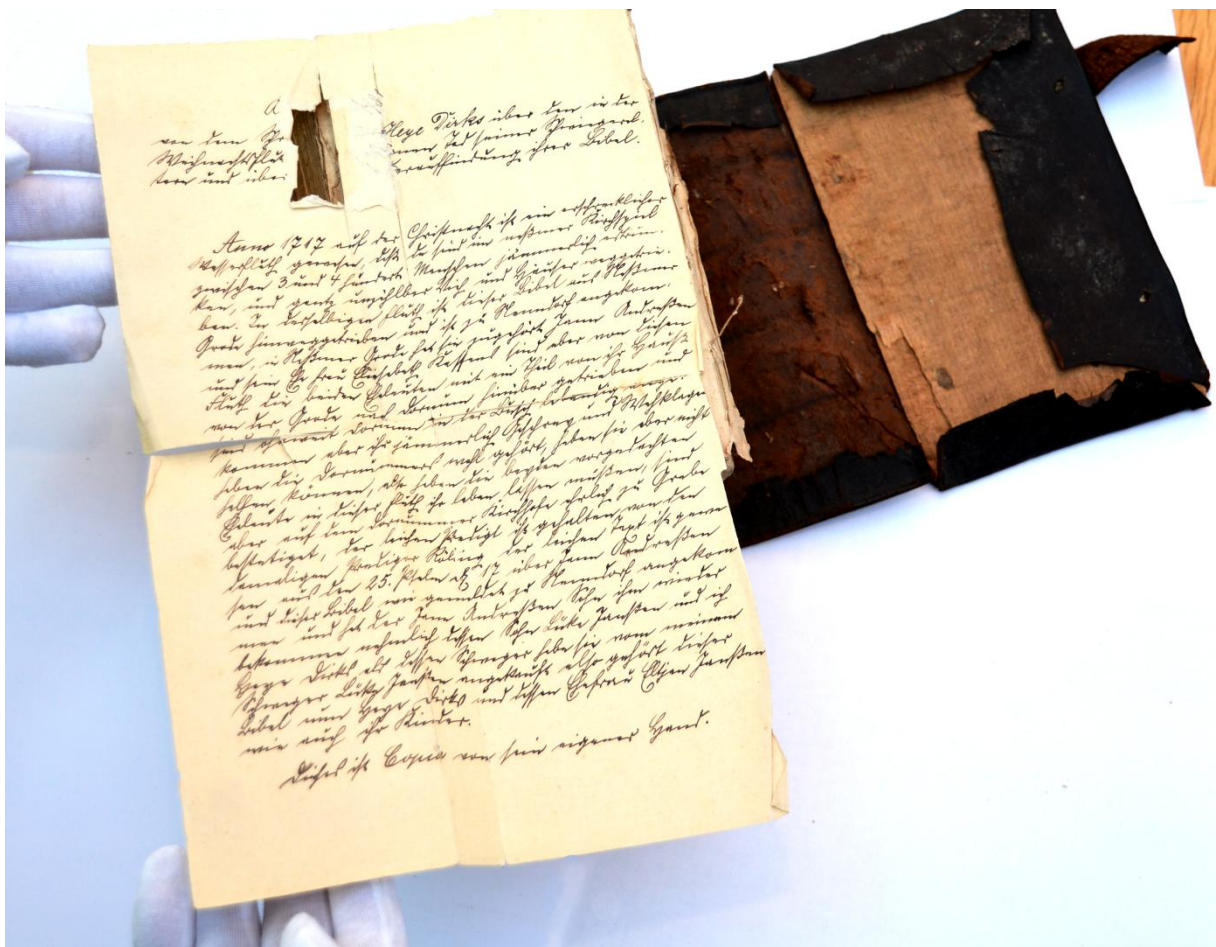 A
von dem Spr Heye Dirks über den in der
Weihnachtsflut Tod seiner Schwiegerel
tern und über derauffindung ihrer Bibel.
Anno 1717 auf der Christnacht ist ein erschrecklicher
Wasserfluth gewesen, das da sind im neßmer Kirchspiel
zwischen 3 und 4 hundert Menschen jämmerlich ertrun-
ken, und gantz unzählbar Vieh und Häuser weggetrie-
ben. In derselbigen Fluth ist dieser Bibel aus Neßmer
Grode hinweggetrieben und ist zu Nenndorf angekom-
men, in Neßmer Grode hat sie zugehört Jann Andreßen
und sein Ehfrau Lisebett Kassens sind aber von diesen
Fluth die beiden Eheleuten mit ein Theil von ihr Hauß
von der Grode nach Dornum hinüber getrieben und
sind ohnweit Dornum in der Busch lebendig ange-
kommen aber ihr jämmerlich Geschrey und Wehklagen
haben die Dornummers wohl gehört, haben sie aber nicht
helfen können, also haben die beyden vorgedachten
Eheleute in dieser Fluth ihr leben lassen müßen, sind
aber auf dem Dornummer Kirchhofe ehrlich zu Grabe
bestetiget, der leichen Predigt ist gehalten von den
damaligen Prediger Köling der leichen Text ist gewe
sen aus den 25. Psalm V. 17 über Jann Andreßen
und dieser Bibel wie gemeldet zu Nenndorf angekom
men und hat der Jann Andreßen Sohn ihm wieder
bekommen nehmlich dessen Sohn Lüke Janßen und ich
Heye Dirks als dessen Schwager habe sie vom meinem
Schwager Lüke Janßen angekauft also gehört dieser
Bibel nun Heye Dirks und dessen Ehefrau Eltjen Janßen
wie auch ihr Kinder.
Dieses ist Copia von sein eigener Hand.